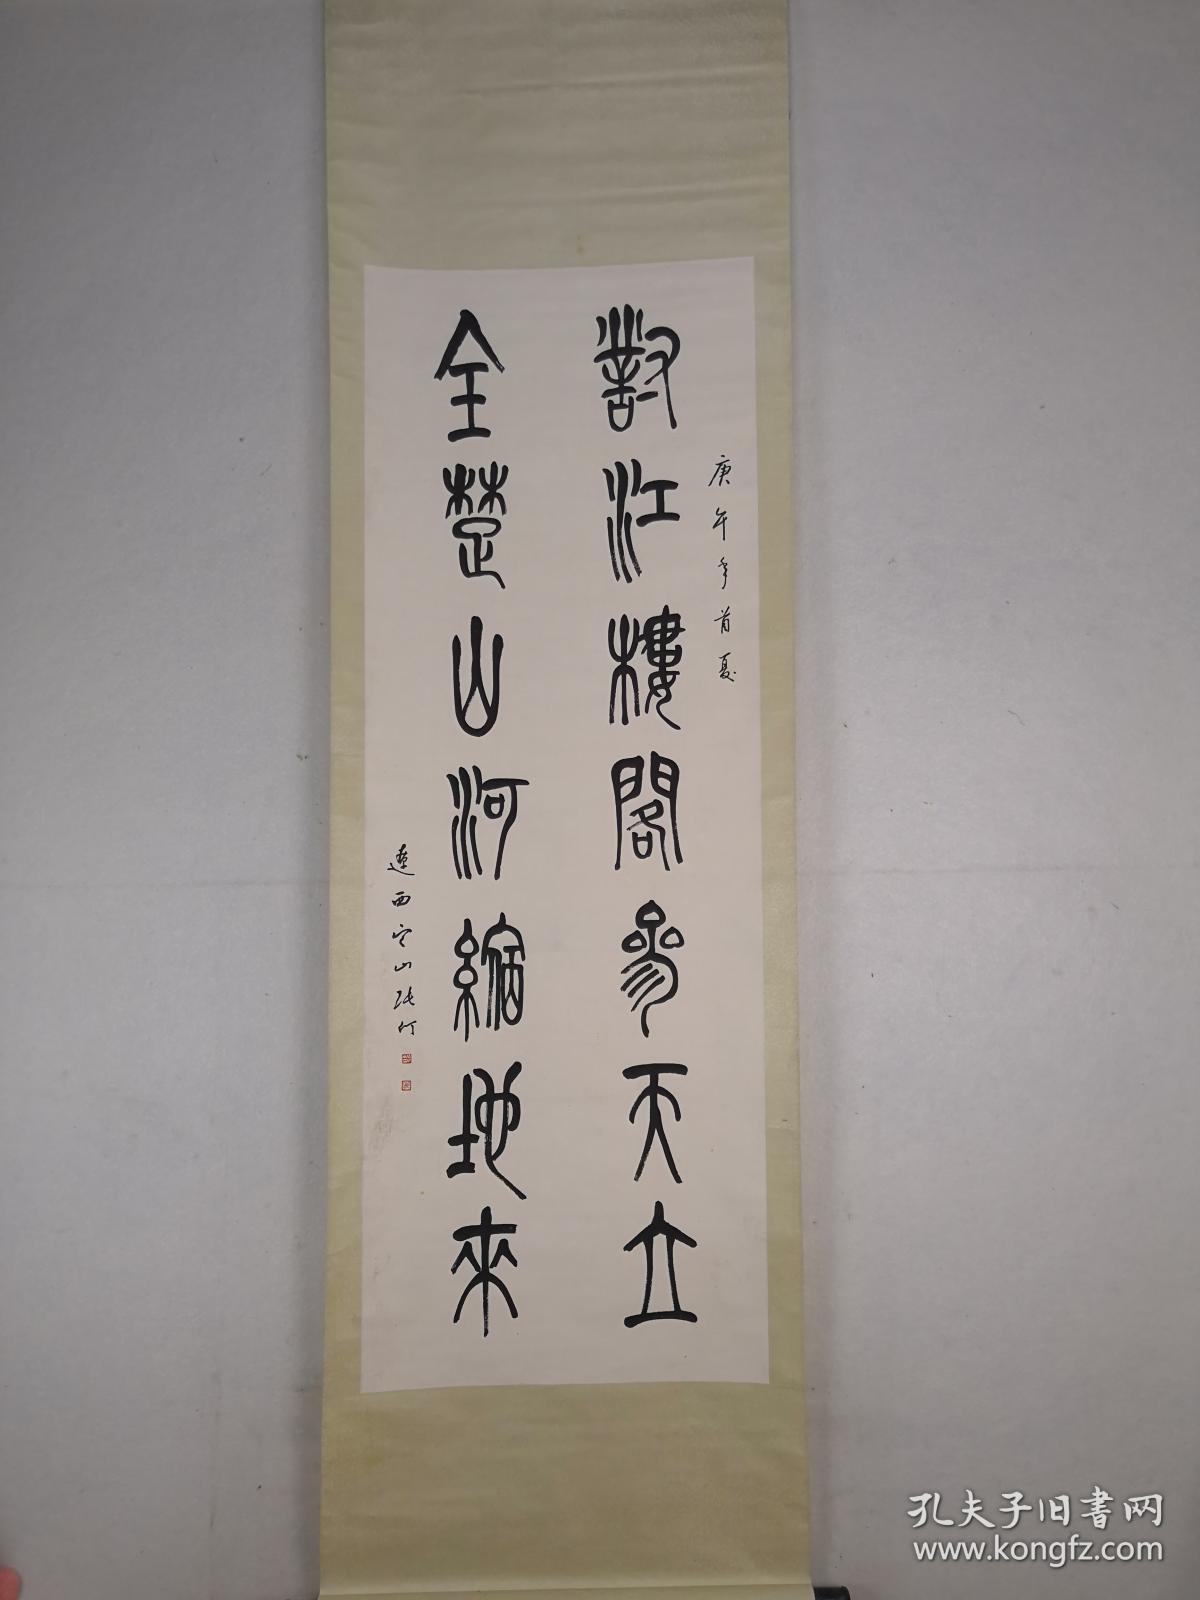 庚午年首夏
對江樓閣參天立
全楚山河縮地來
遼西
山
孔夫子旧書网
www.kongfz.com